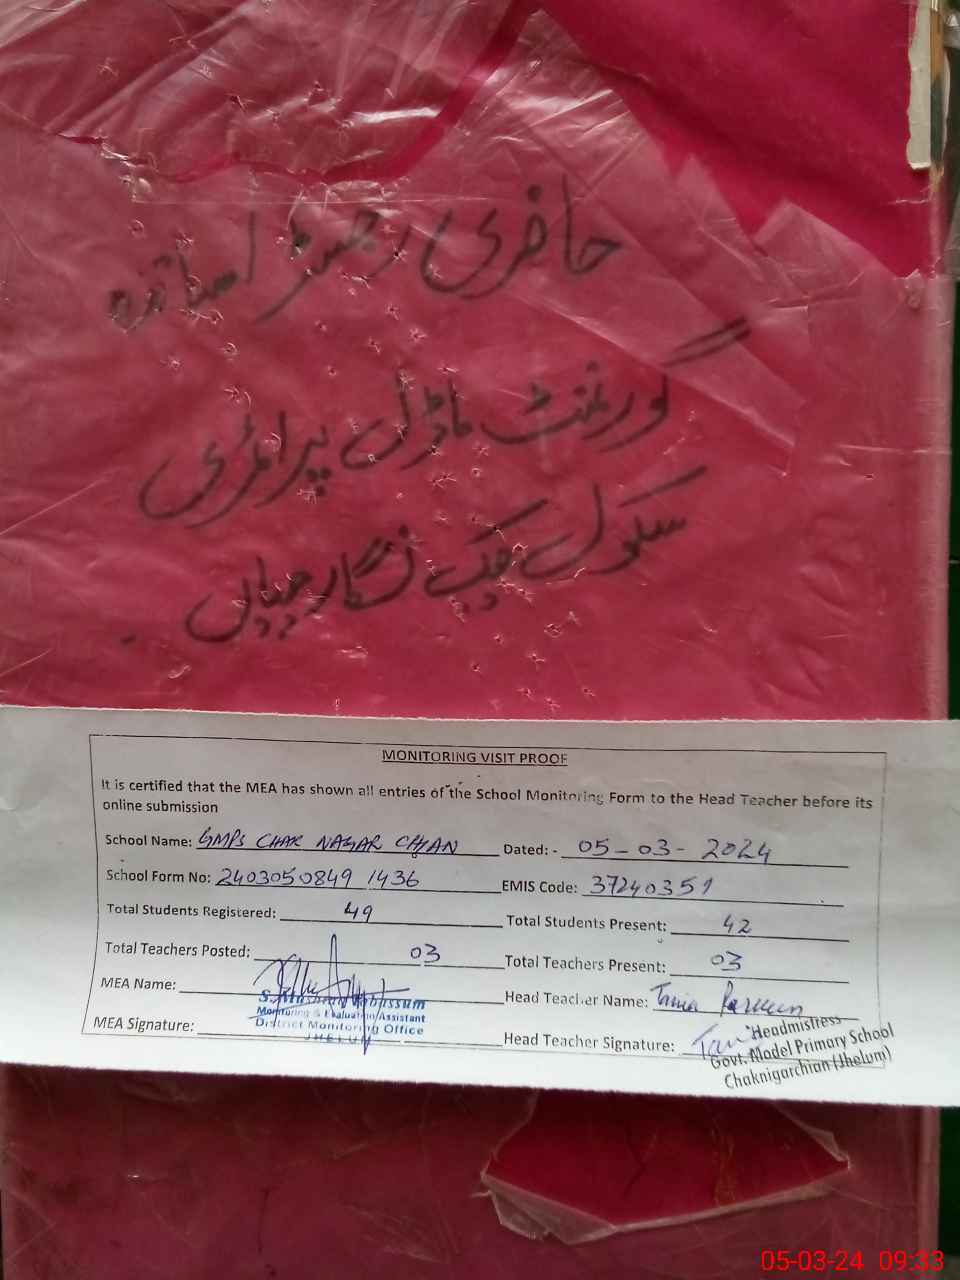 حاضری رجسٹر اساتذہ
گورنمنٹ ماڈل پرائمری
سکول چک نگارچیاں
MONITORING VISIT PROOF
It is certified that the MEA has shown all entries of the School Monitoring Form to the Head Teacher before its
online submission
School Name: GMPS CHAK NAGAR CHIAN Dated: - 05-03-2024
School Form No: 2403050849 1436 EMIS Code: 37240351
Total Students Registered: 49 Total Students Present: 42
Total Teachers Posted: 03 Total Teachers Present: 03
MEA Name: Head Teacher Name: Tania Parveen
Tabassum
Monitoring & Evaluation Assistant
District Monitoring Office
JHELUM
MEA Signature: Head Teacher Signature:
Headmistress
Govt. Model Primary School
Chaknigarchian (Jhelum)
05-03-24 09:33